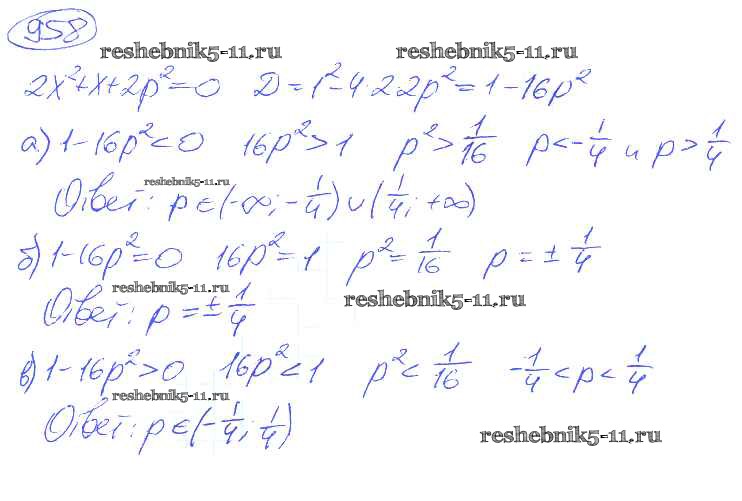 958
reshebnik5-11.ru reshebnik5-11.ru
2x²+x+2p²=0 D=1²-4·2·2p²=1-16p²
а) 1-16p²<0 16p²>1 p²>1/16 p<-1/4 и p>1/4
reshebnik5-11.ru
Ответ: p∈(-∞;-1/4)∪(1/4;+∞)
б) 1-16p²=0 16p²=1 p²=1/16 p=±1/4
reshebnik5-11.ru reshebnik5-11.ru
Ответ: p=±1/4
в) 1-16p²>0 16p²<1 p²<1/16 -1/4<p<1/4
reshebnik5-11.ru
Ответ: p∈(-1/4;1/4)
reshebnik5-11.ru